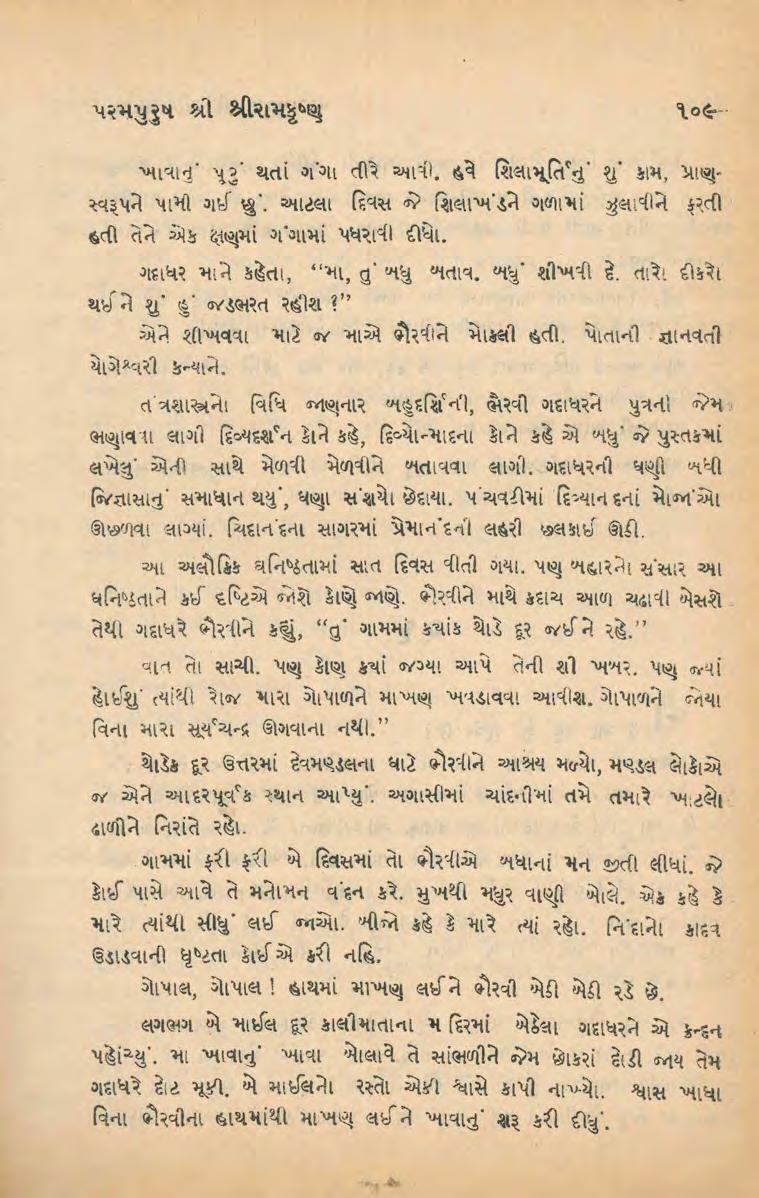 પરમપુરુષ શ્રી શ્રીરામકૃષ્ણ ૧૦૯
ખાવાનું પૂરું થતાં ગંગા તીરે આવી. હવે શિલામૂર્તિનું શું કામ, પ્રાણ-
સ્વરૂપને પામી ગઈ છું. આટલા દિવસ જે શિલાખંડને ગળામાં ઝુલાવીને ફરતી
હતી તેને એક ક્ષણમાં ગંગામાં પધરાવી દીધો.
ગદાધર માને કહેતા, “મા, તું બધુ બતાવ. બધું શીખવી દે. તારો દીકરો
થઈને શું હું જડભરત રહીશ ?”
એને શીખવવા માટે જ માએ ભૈરવીને મોકલી હતી. પોતાની જ્ઞાનવતી
યોગેશ્વરી કન્યાને.
તંત્રશાસ્ત્રનો વિધિ જાણનાર બહુદર્શિની, ભૈરવી ગદાધરને પુત્રની જેમ
ભણાવવા લાગી દિવ્યદર્શન કોને કહે, દિવ્યોન્માદના કોને કહે એ બધું જે પુસ્તકમાં
લખેલુ એની સાથે મેળવી મેળવીને બતાવવા લાગી. ગદાધરની ઘણી બધી
જિજ્ઞાસાનું સમાધાન થયું, ઘણા સંશયો છેદાયા. પંચવટીમાં દિવ્યાનંદનાં મોજાંઓ
ઊછળવા લાગ્યાં. ચિદાનંદના સાગરમાં પ્રેમાનંદની લહરી છલકાઈ ઊઠી.
આ અલૌકિક ઘનિષ્ઠતામાં સાત દિવસ વીતી ગયા. પણ બહારનો સંસાર આ
ઘનિષ્ઠતાને કઈ દષ્ટિએ જોશે કોણે જાણે. ભૈરવીને માથે કદાચ આળ ચઢાવી બેસશે
તેથી ગદાધરે ભૈરવીને કહ્યું, “તું ગામમાં કયાંક થોડે દૂર જઈને રહે.”
વાત તો સાચી. પણ કોણ કયાં જગ્યા આપે તેની શી ખબર. પણ જ્યાં
હોઈશું ત્યાંથી રોજ મારા ગોપાળને માખણ ખવડાવવા આવીશ. ગોપાળને જોયા
વિના મારા સૂર્યચન્દ્ર ઊગવાના નથી.”
થોડેક દૂર ઉત્તરમાં દેવમણ્ડલના ઘાટે ભૈરવીને આશ્રય મળ્યો, મણ્ડલ લોકોએ
જ એને આદરપૂર્વક સ્થાન આપ્યું. અગાસીમાં ચાંદનીમાં તમે તમારે ખાટલો
ઢાળીને નિરાંતે રહો.
ગામમાં ફરી ફરી બે દિવસમાં તો ભૈરવીએ બધાનાં મન જીતી લીધાં. જે
કોઈ પાસે આવે તે મનોમન વંદન કરે. મુખથી મધુર વાણી બોલે. એક કહે કે
મારે ત્યાંથી સીધું લઈ જાઓ. બીજો કહે કે મારે ત્યાં રહો. નિંદાનો કાદવ
ઉડાડવાની ધૃષ્ટતા કોઈએ કરી નહિ.
ગોપાલ, ગોપાલ ! હાથમાં માખણ લઈને ભૈરવી બેઠી બેઠી રડે છે.
લગભગ બે માઈલ દૂર કાલીમાતાના મંદિરમાં બેઠેલા ગદાધરને એ ક્રન્દન
પહોંચ્યું. મા ખાવાનું ખાવા બોલાવે તે સાંભળીને જેમ છોકરાં દોડી જાય તેમ
ગદાધરે દોટ મૂકી. બે માઈલનો રસ્તો એકી શ્વાસે કાપી નાખ્યો. શ્વાસ ખાધા
વિના ભૈરવીના હાથમાંથી માખણ લઈને ખાવાનું શરૂ કરી દીધું.